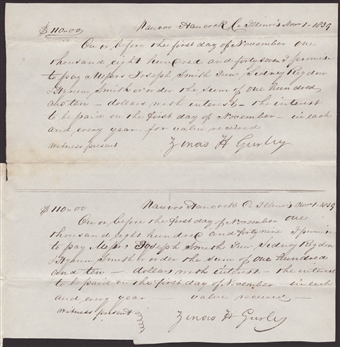 $110.00 Nauvoo Hancock Co. Illinois Nov 1. 1839
On or before the first day of November one
thousand eight hundred and forty seven I promise
to pay Messrs Joseph Smith Jun, Sidney Rigdon
& Hyrum Smith or order the sum of one hundred
and ten - dollars with interest - the interest
to be paid on the first day of November - in each
and every year for value received
witness present Zenos H Gurley
$110.00 Nauvoo Hancock Co. Illinois Nov 1- 1839
On or before the first day of November one
thousand eight hundred and forty nine I promise
to pay Messrs Joseph Smith Jun, Sidney Rigdon
& Hyrum Smith or order the sum of one hundred
and ten - dollars with interest - the interest
to be paid on the first day of November - in each
and every year value received -
witness present Zenos H Gurley